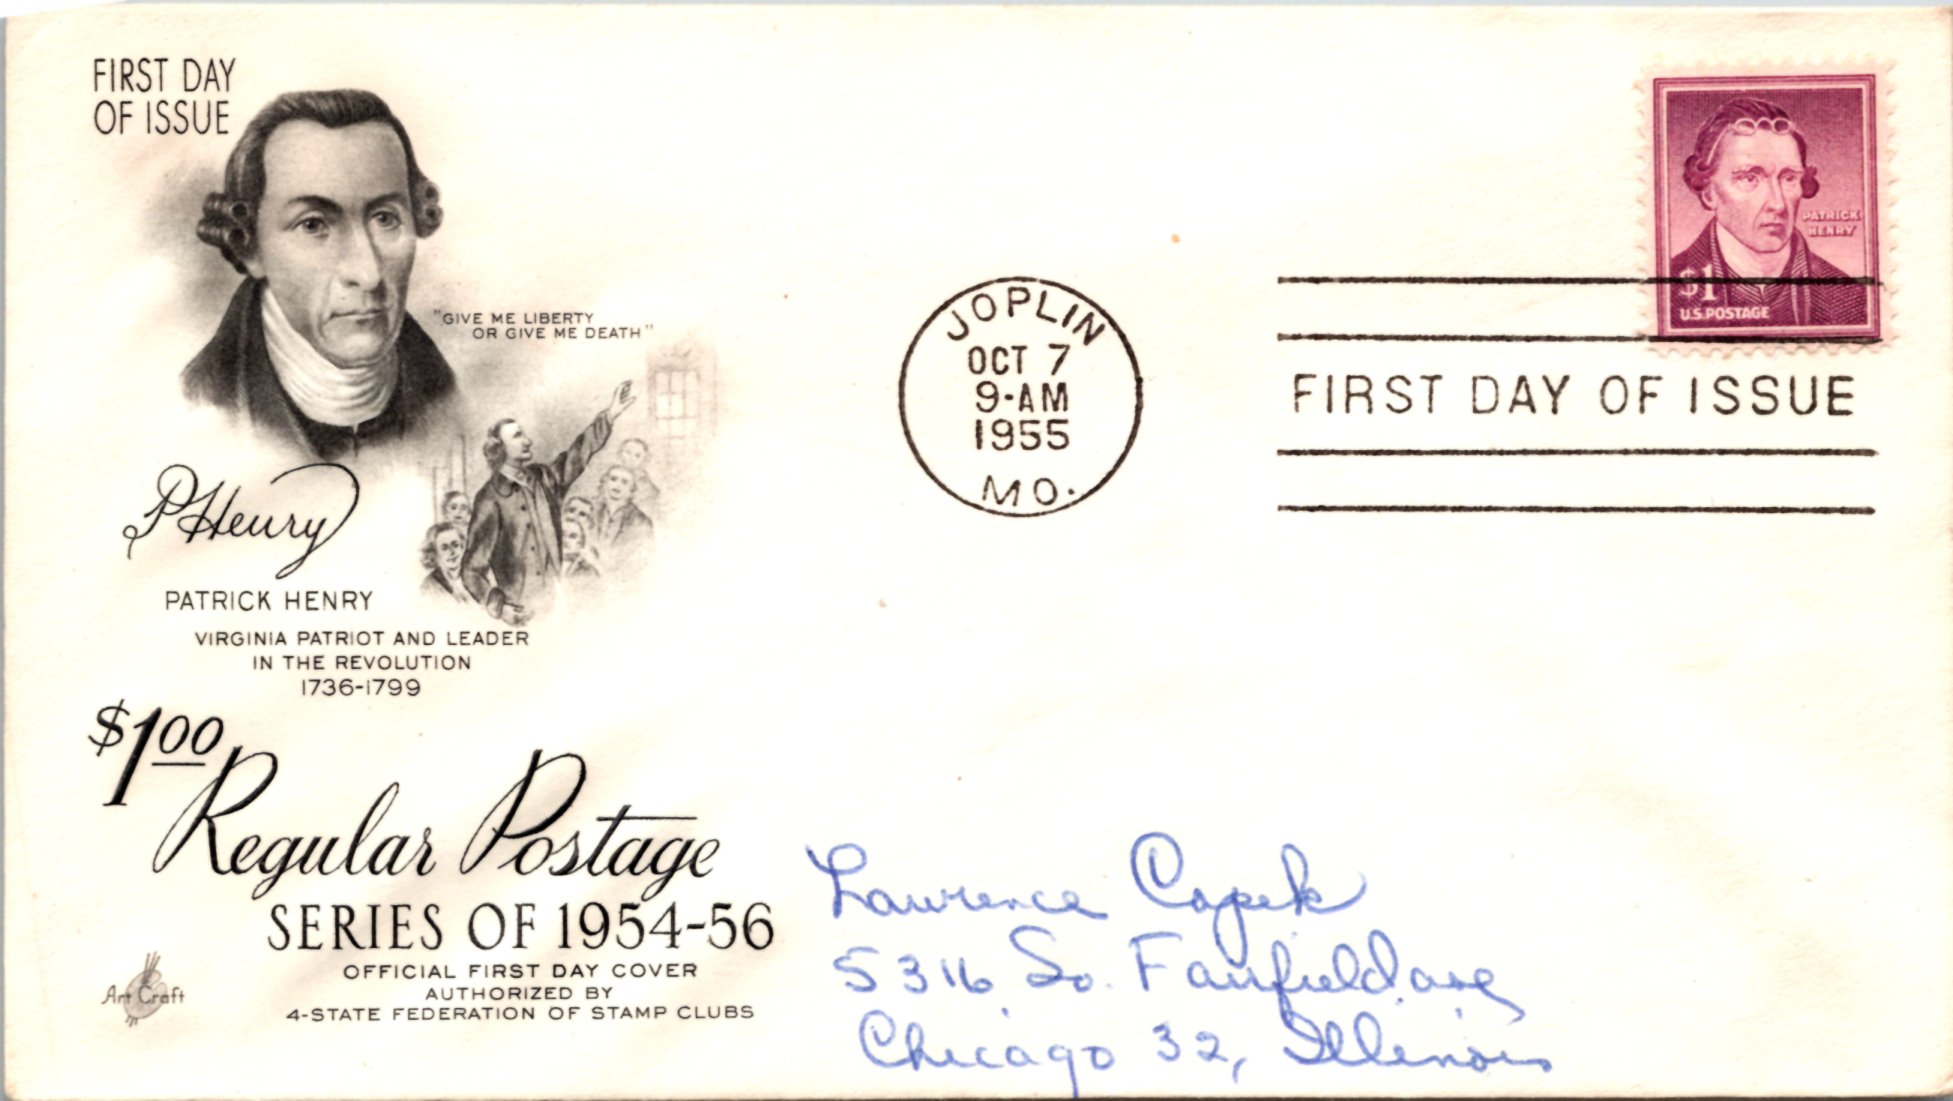 FIRST DAY
OF ISSUE
"GIVE ME LIBERTY
OR GIVE ME DEATH"
P Henry
PATRICK HENRY
VIRGINIA PATRIOT AND LEADER
IN THE REVOLUTION
1736-1799
$1.00
Regular Postage
SERIES OF 1954-56
OFFICIAL FIRST DAY COVER
AUTHORIZED BY
4-STATE FEDERATION OF STAMP CLUBS
Art Craft
JOPLIN
OCT 7
9-AM
1955
MO.
PATRICK
HENRY
$1
U.S. POSTAGE
FIRST DAY OF ISSUE
Lawrence Capek
5316 So. Fairfield ave
Chicago 32, Illinois